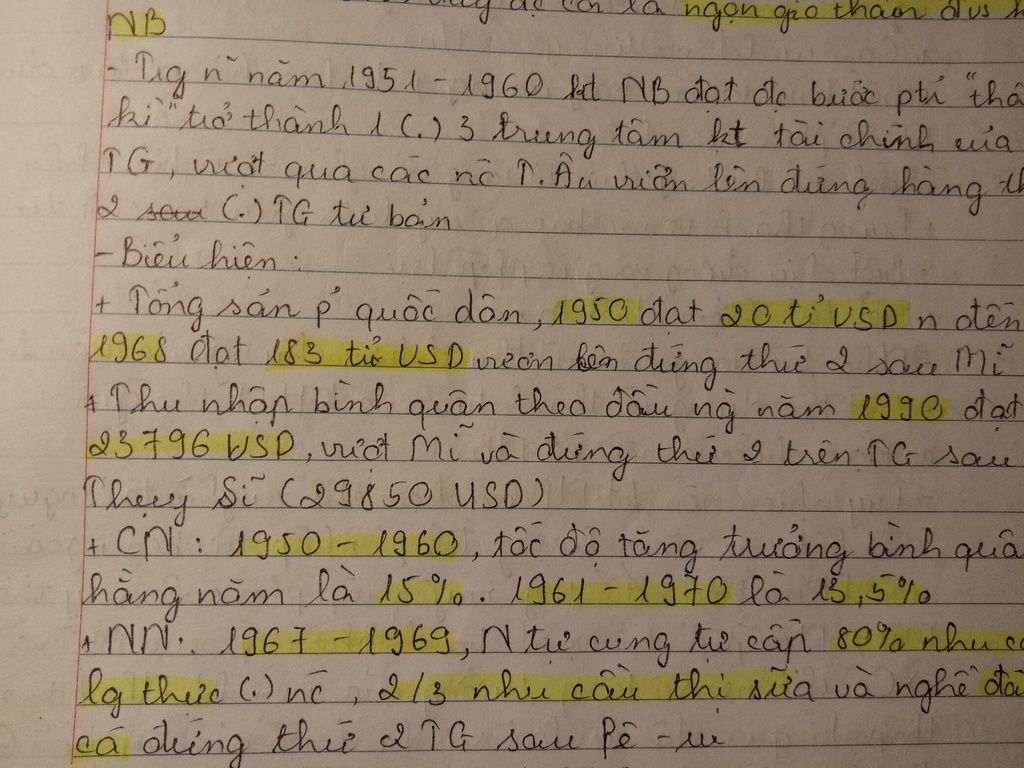 là ngọn gió thần
NB
- Trg n~ năm 1951 - 1960 kt NB đạt đc bước ptr "thầ
kì" trở thành 1 (.) 3 trung tâm kt tài chính của
TG, vượt qua các nc T. Âu vươn lên đứng hàng th
2 (.) TG tư bản
- Biểu hiện :
+ Tổng sản p~ quốc dân, 1950 đạt 20 tỉ USD n đến
1968 đạt 183 tỉ USD vươn lên đứng thứ 2 sau Mĩ
+ Thu nhập bình quân theo đầu ng năm 1990 đạt
23796 USD, vượt Mĩ và đứng thứ 2 trên TG sau
Thụy Sĩ (29850 USD)
+ CN : 1950 - 1960, tốc độ tăng trưởng bình quâ
hằng năm là 15%. 1961 - 1970 là 13,5%
+ NN : 1967 - 1969, N tự cung tự cấp 80% nhu c
lg thực (.) nc, 2/3 nhu cầu thị sữa và nghề đá
cá đứng thứ 2 TG sau Pê - ru